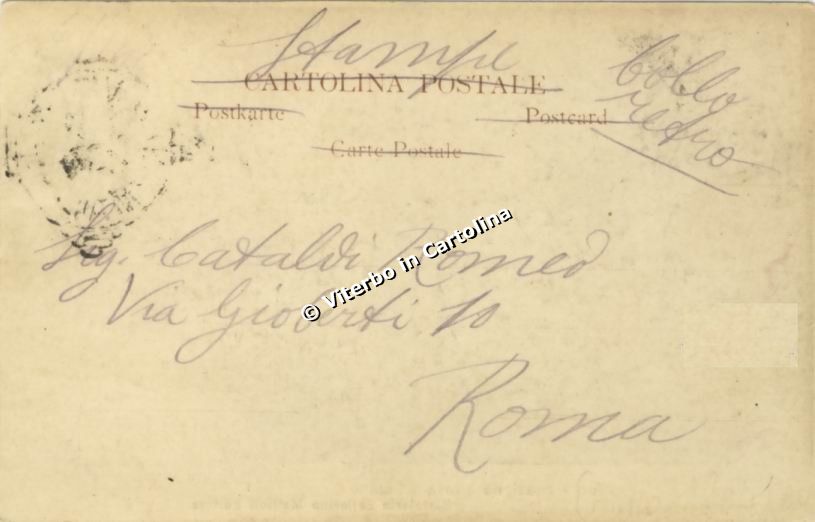 Stampe
Bollo
retro
CARTOLINA POSTALE
Postkarte Postcard
Carte Postale
Sig. Cataldi Romeo
© Viterbo in Cartolina
Via Gioberti 10
Roma